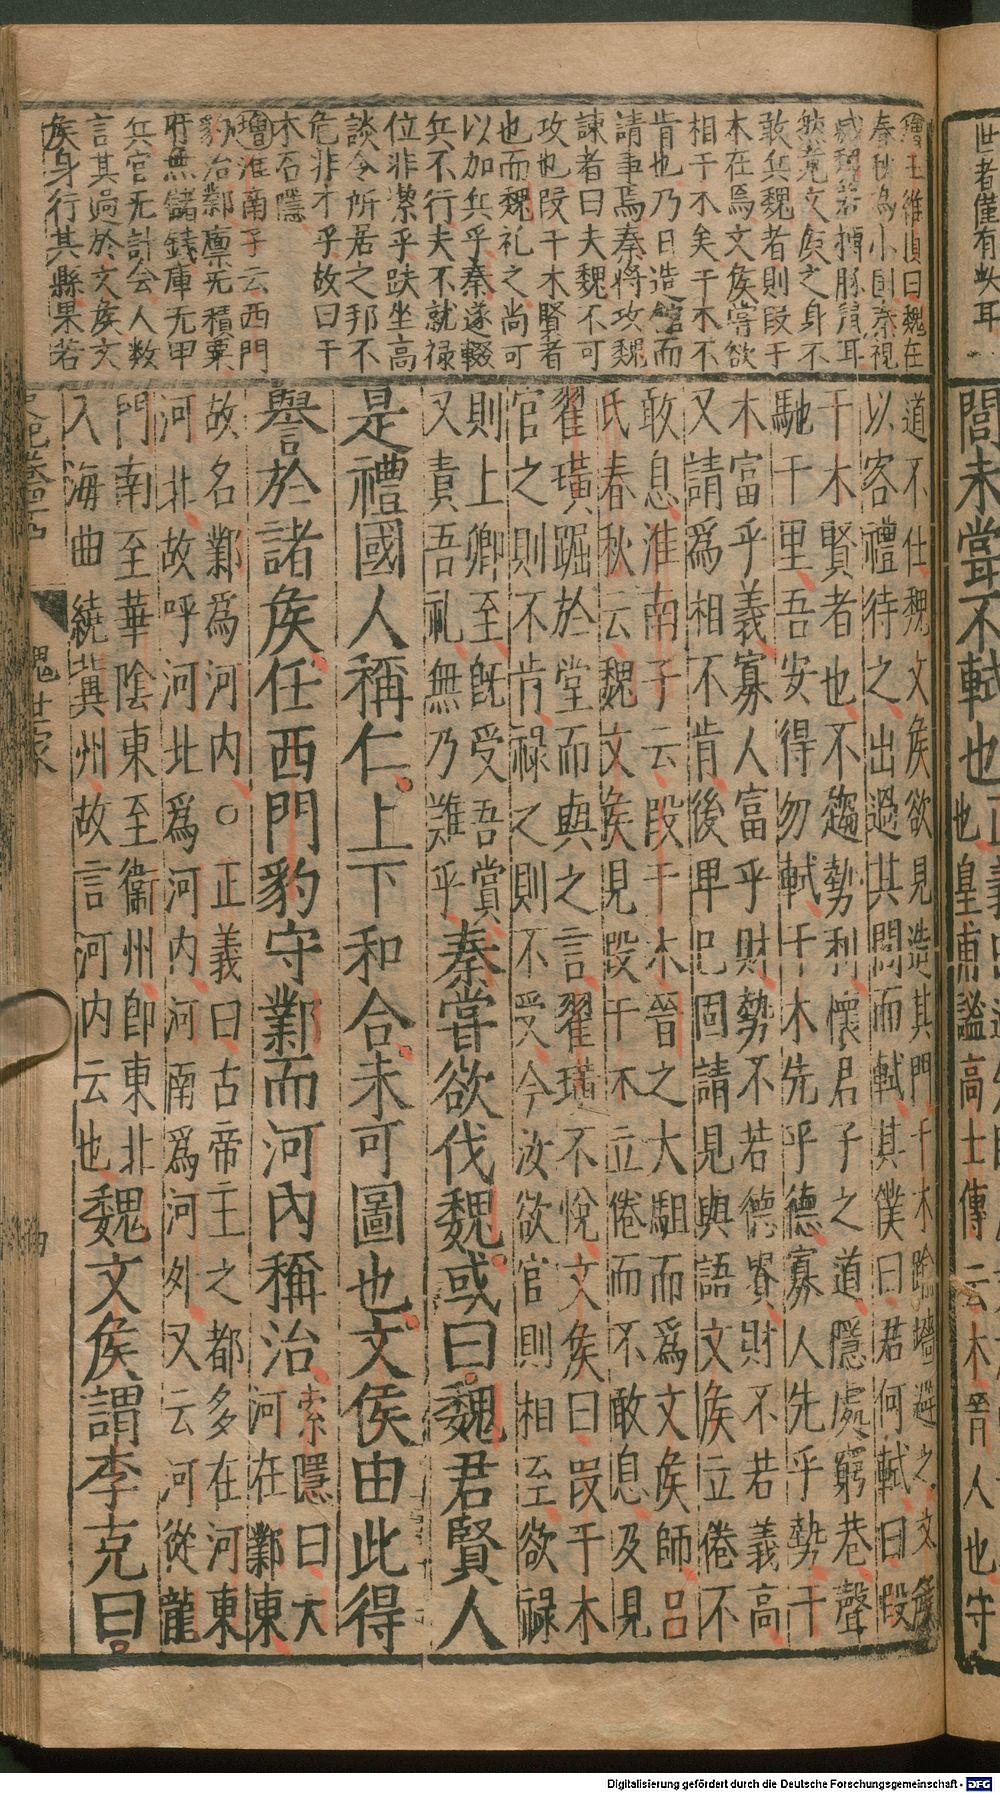 世者僅有此耳
閭未嘗不軾也
也皇甫謐高士傳云木晉人也守
增王維貞曰魏在
秦秋為小國秦視
滅魏若搏豚彘耳
然竟文矦之身不
敢兵魏者則段于
木在焉文矦嘗欲
相于木矣于木不
肯也乃日造舘而
請事焉秦將攻魏
諫者曰夫魏不可
攻也段干木賢者
也而魏礼之尚可
以加兵乎秦遂輟
兵不行夫不就禄
位非潔乎趺坐高
談令所居之邦不
危非才乎故曰干
木石隱
增淮南子云西門
豹治鄴廪无積粟
府無儲錢庫无甲
兵官无計会人数
言其過於文矦文
矦身行其縣果若
道不仕魏文矦欲見造其門干木踰墻避之文矦
以客禮待之出過其閭而軾其僕曰君何軾曰段
干木賢者也不趨勢利懷君子之道隱處窮巷聲
馳千里吾安得勿軾干木先乎德寡人先乎勢干
木富乎義寡人富乎財勢不若德貴財不若義高
又請爲相不肯後卑已固請見與語文矦立倦不
敢息淮南子云段干木晉之大駔而爲文矦師呂
氏春秋云魏文矦見段干木立倦而不敢息及見
翟璜踞於堂而與之言翟璜不悅文矦曰段干木
官之則不肯祿之則不受今汝欲官則相至欲祿
則上卿至旣受吾賞
又責吾礼無乃難乎
秦嘗欲伐魏或曰魏君賢人
是禮國人稱仁上下和合未可圖也文侯由此得
譽於諸矦任西門豹守鄴而河內稱治
索隱曰大
河在鄴東
故名鄴爲河内○正義曰古帝王之都多在河東
河北故呼河北爲河内河南爲河外又云河從龍
門南至華陰東至衞州卽東北
入海曲繞冀州故言河内云也
魏文矦謂李克曰
魏世家
Digitalisierung gefördert durch die Deutsche Forschungsgemeinschaft - DFG